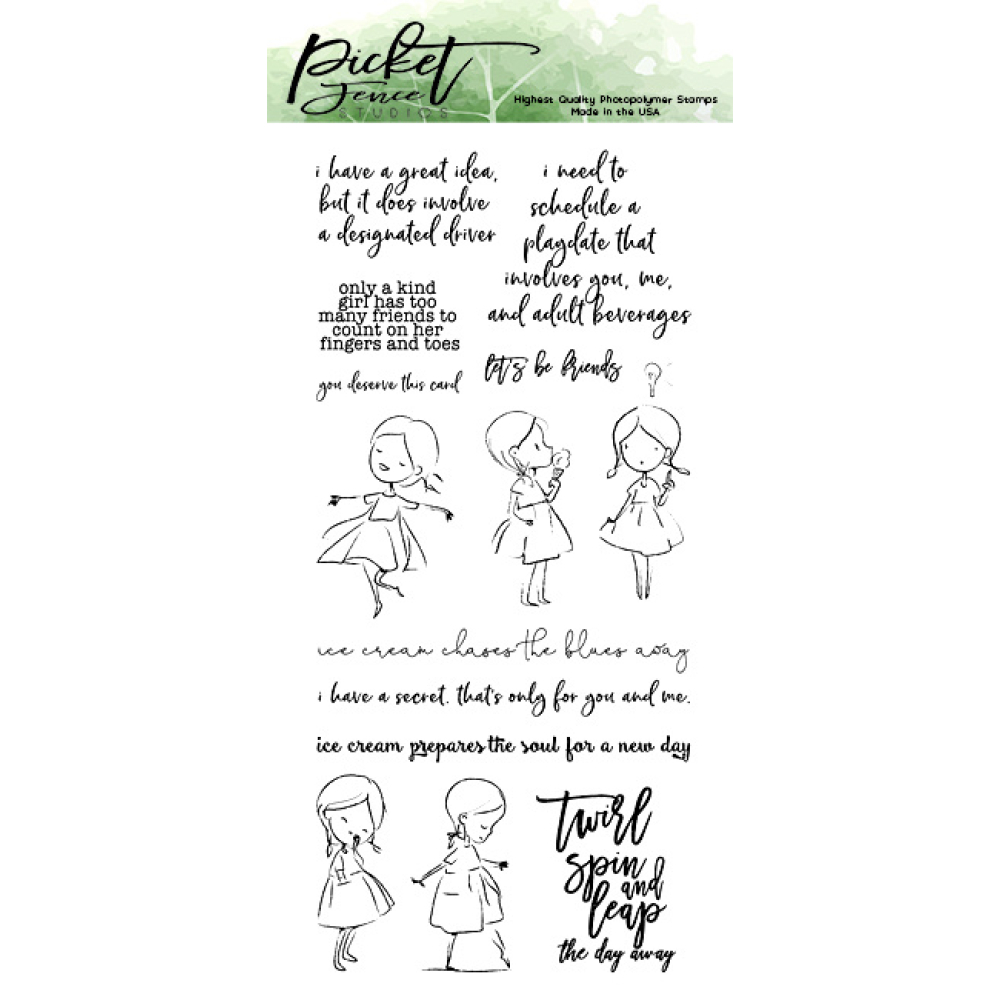 Picket
Fence
STUDIOS
Highest Quality Photopolymer Stamps
Made in the USA
i have a great idea,
but it does involve
a designated driver
i need to
schedule a
playdate that
involves you, me,
and adult beverages
only a kind
girl has too
many friends to
count on her
fingers and toes
you deserve this card
let's be friends
ice cream chases the blues away
i have a secret. that's only for you and me.
ice cream prepares the soul for a new day
twirl
spin
and
leap
the day away